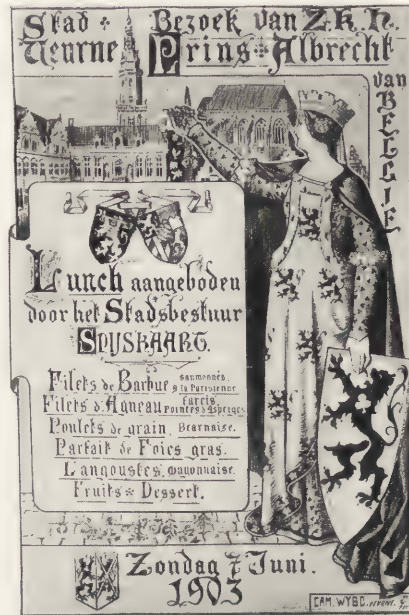 Stad Bezoek van Z.K.H.
Veurne Prins Albrecht
van
BELGIE
Lunch aangeboden
door het Stadsbestuur
SPIJSKAART.
Filets de Barbue saumonnés, à la Parisienne
Filets d'Agneau farcis, Pointes d'Asperges
Poulets de grain, Béarnaise.
Parfait de Foies gras.
Langoustes, mayonnaise.
Fruits Dessert.
Zondag 7 Juni.
1903
CAM. WYBO.